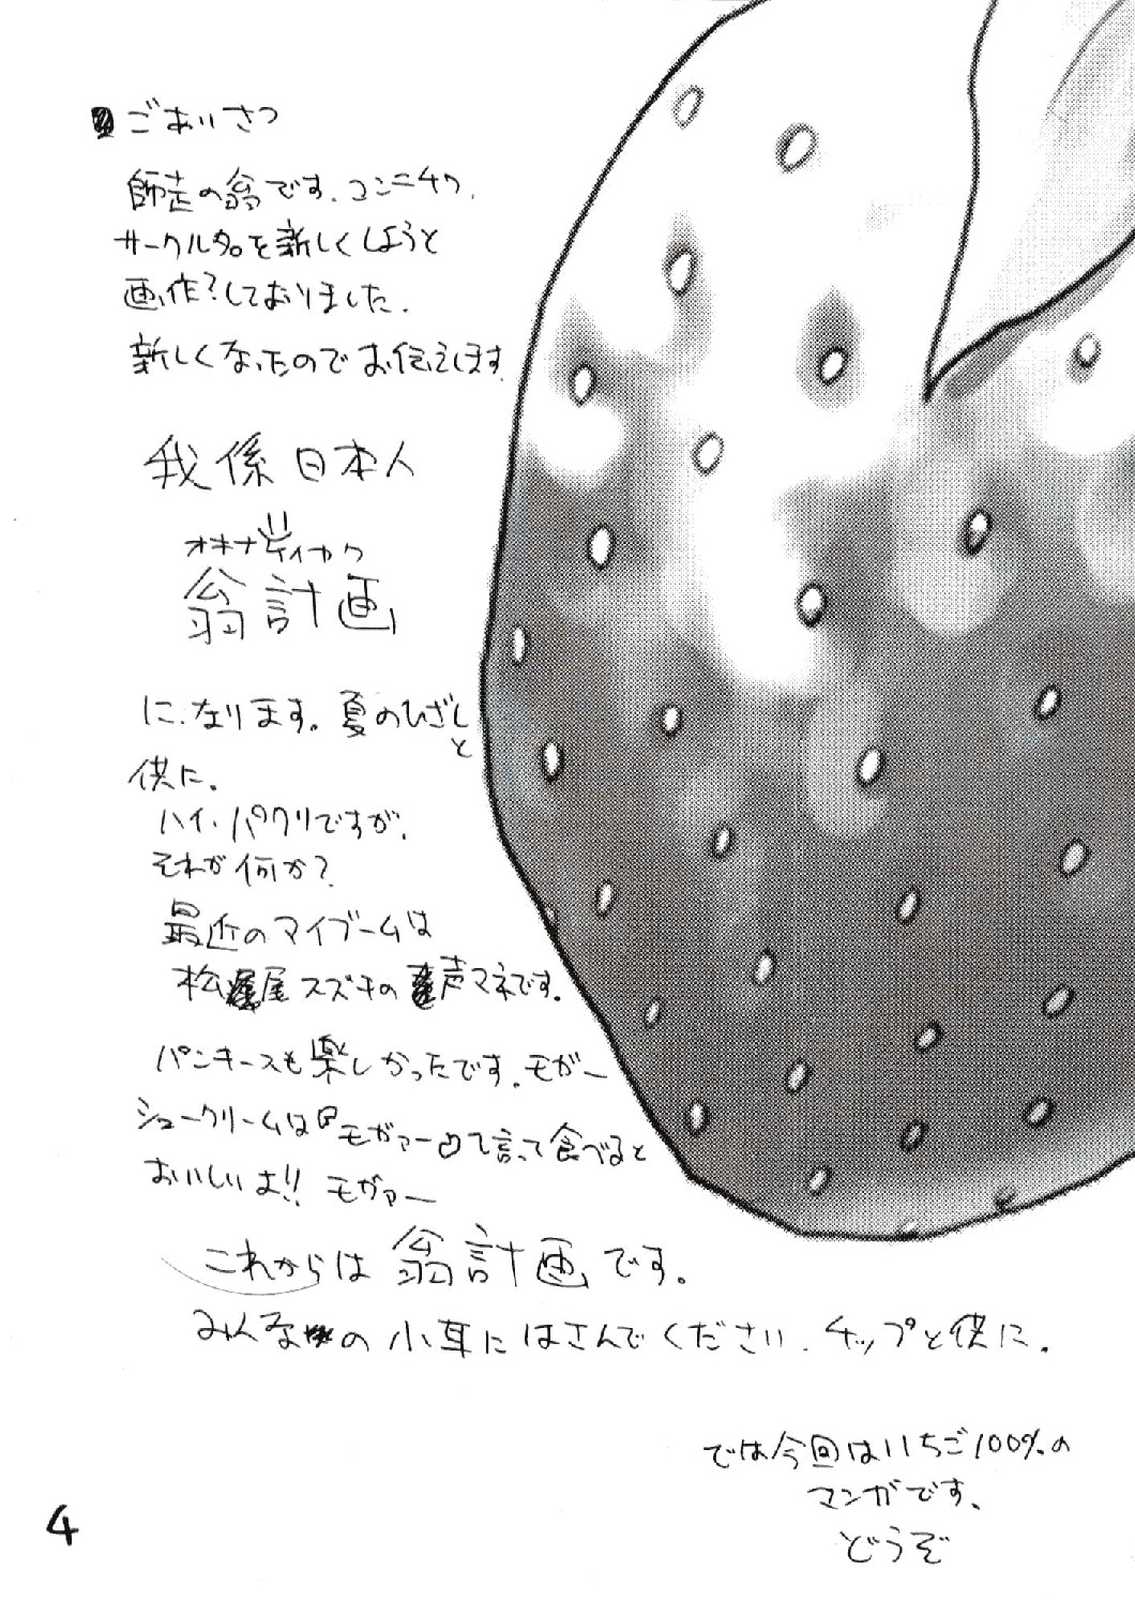 ごあいさつ
師走の翁です、コンニチワ、
サークル名を新しくしようと
画作?しておりました、
新しくなったのでお伝えします
我係日本人
オキナケイカク
翁計画
に、なります。夏のひざしと
供に。
ハイ、パクリですが、
それが何か?
最近のマイブームは
松尾スズキの声マネです。
パンキースも楽しかったです、モガー
シュークリームは『モガァー』て言って食べると
おいしいよ!! モガァー
これからは翁計画です。
みんなの小耳にはさんでください、チップと供に。
では今回はいちご100%の
マンガです、
どうぞ
4